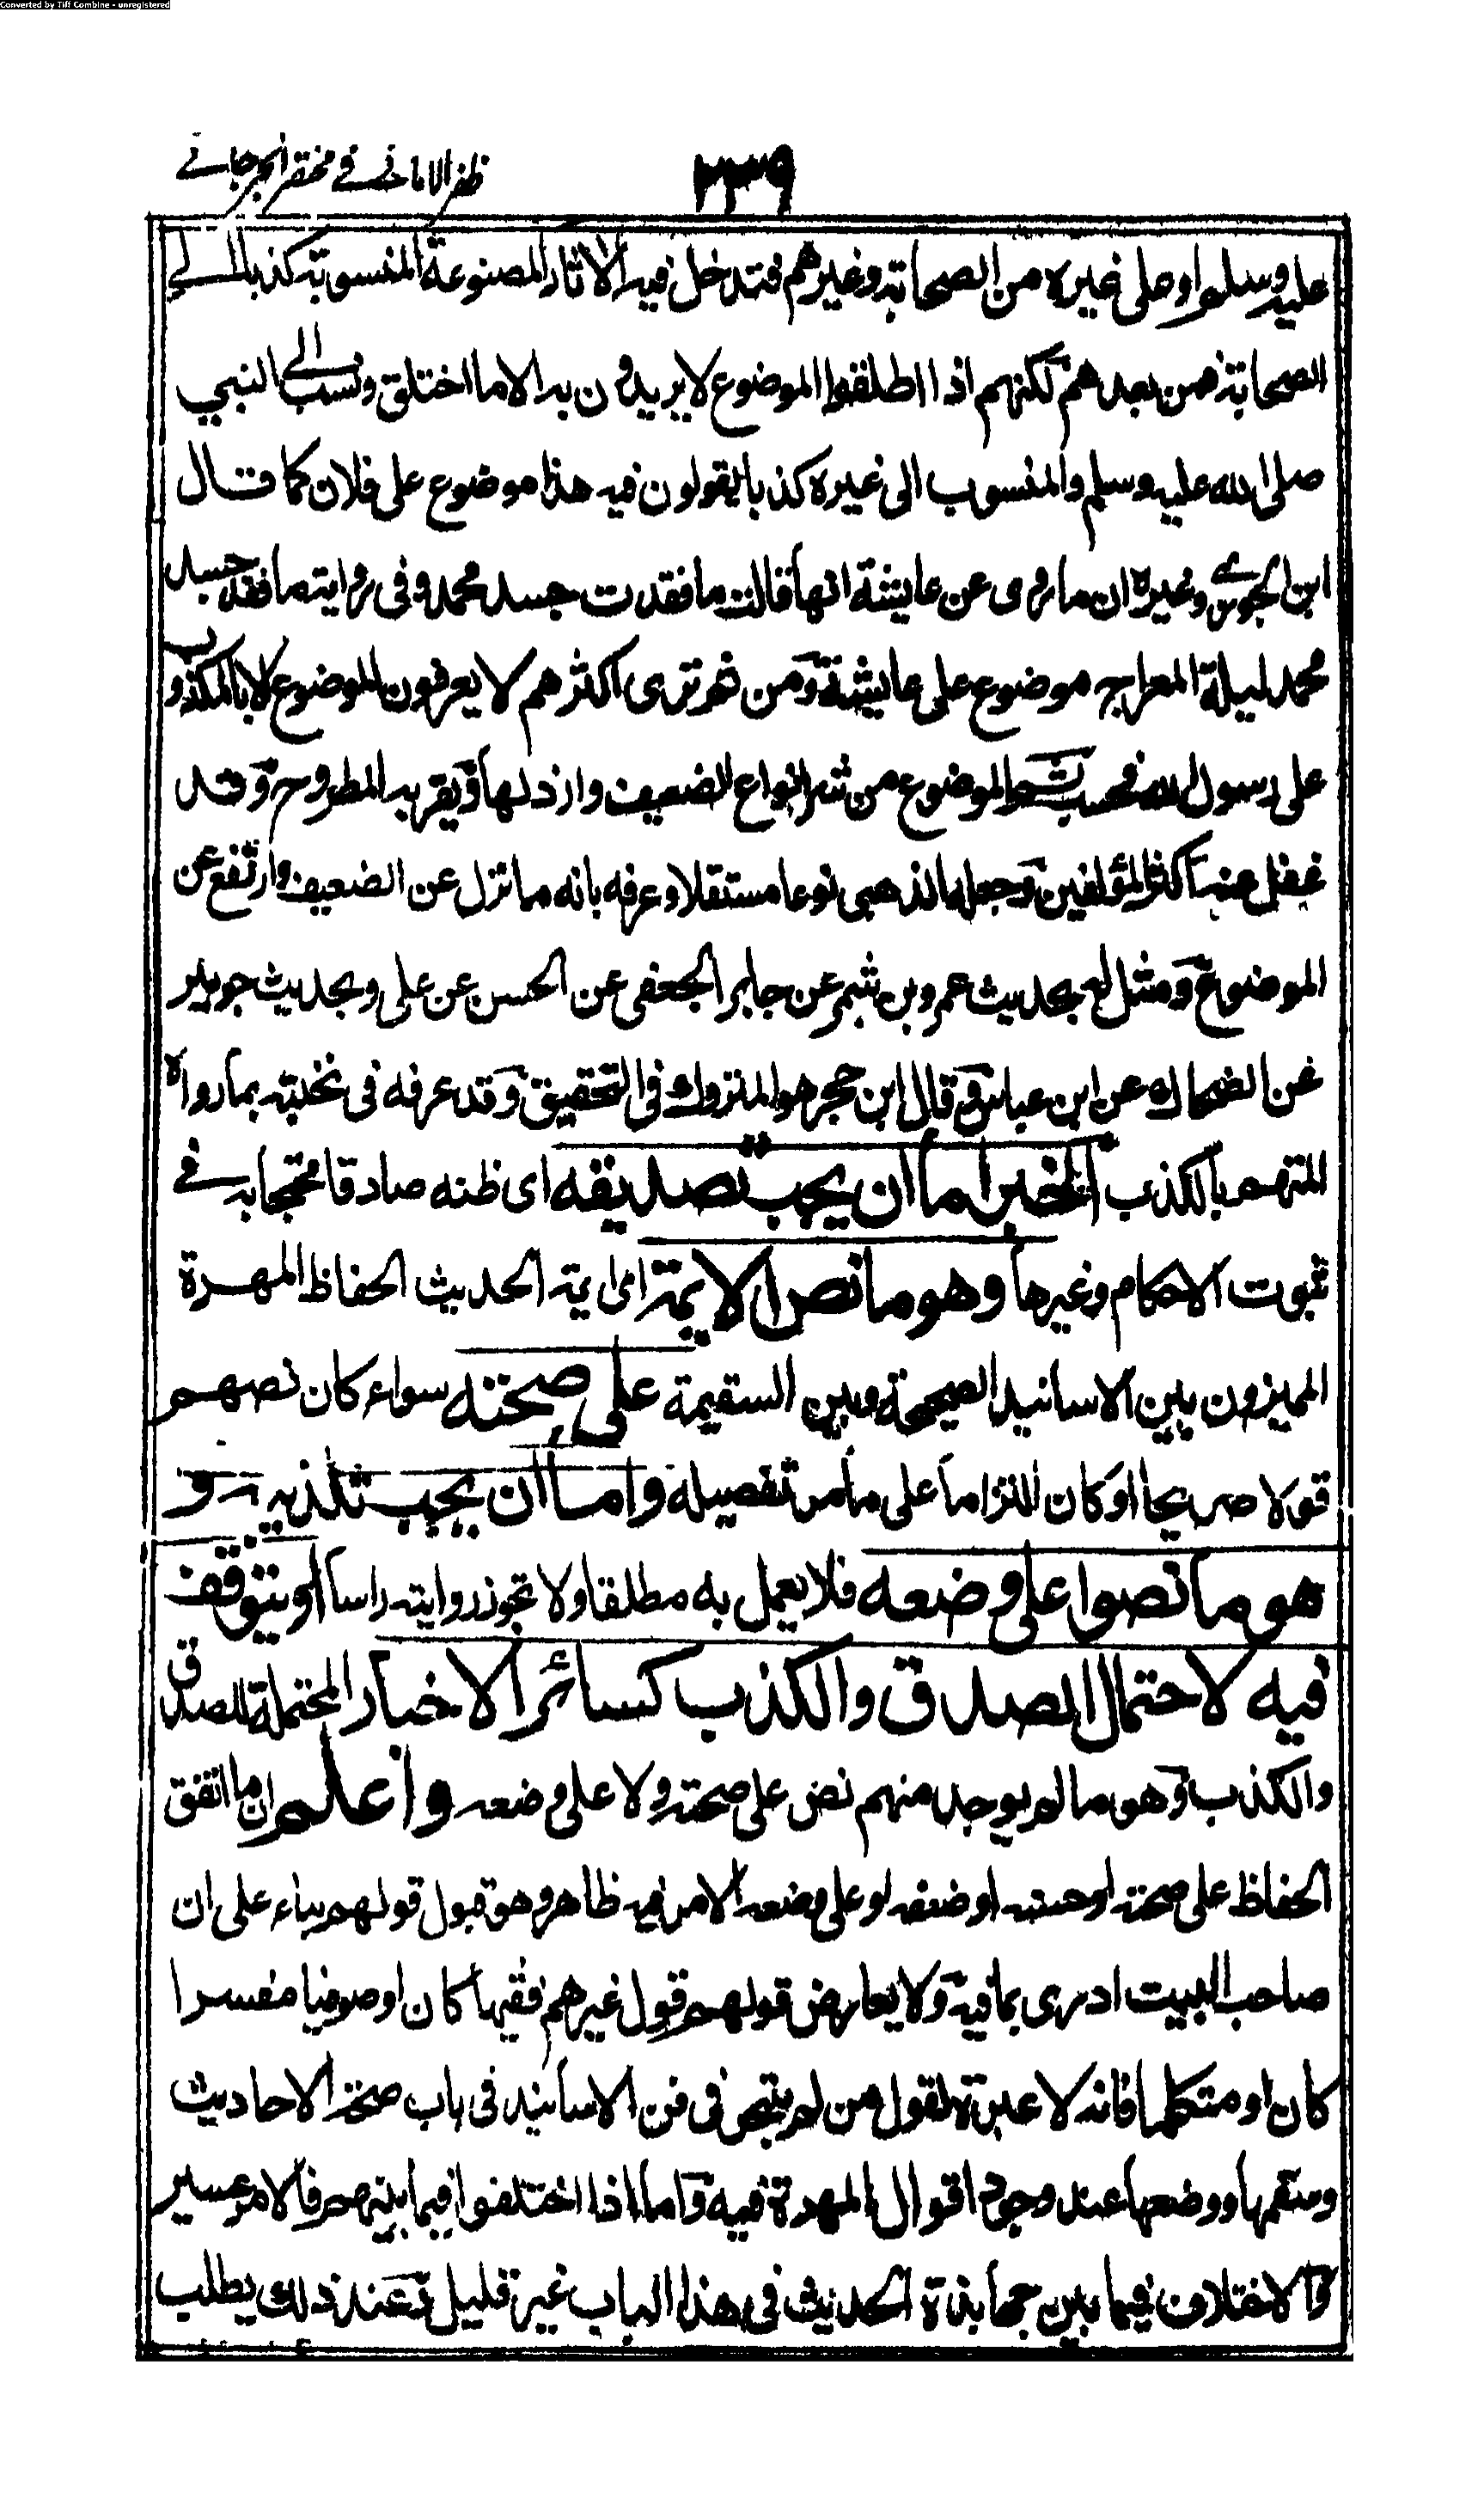 Converted by Tiff Combine - unregistered
ظفر الامانی فی مختصر الجرجانی
٢٣٩
عليه وسلم او على غيره من الصحابة وغيرهم فتدخل فيه الاثار المصنوعة المنسوبة كذبا الى
الصحابة فمن بعدهم لكنهم اذا اطلقوا الموضوع لا يريدون به الا ما اختلق ونسب الى النبي
صلى الله عليه وسلم والمنسوب الى غيره كذبا يقولون فيه هذا موضوع على فلان كما قال
ابن الجوزي وغيره ان ما روى عن عايشة انها قالت ما فقدت جسد محمد وفى رواية ما فقد جسد
محمد ليلة المعراج موضوع على عايشة ومن ثم ترى اكثرهم لا يعرفون الموضوع الا بالمكذوب
على رسول الله فحسب ثم الموضوع من شر انواع الضعيف وارذلها ويقربه المطروح وقد
غفل عنه اكثر المؤلفين وجعله الذهبى نوعا مستقلا وعرفه بانه ما نزل عن الضعيف وارتفع عن
الموضوع ومثل له بحديث عمرو بن شمر عن جابر الجعفى عن الحسن عن على وبحديث جويبر
عن الضحاك عن ابن عباس وقال ابن حجر هو المتروك فى التحقيق وقد عرفه فى نخبته بما رواه
المتهم بالكذب الخبر اما ان يجب تصديقه اى ظنه صادقا محتجا به فى
ثبوت الاحكام وغيرها وهو ما نص الائمة اى ائمة الحديث الحفاظ المهرة
المميزون بين الاسانيد الصحيحة وبين السقيمة على صحته سواء كان نصهم
قولا صريحا او كان التزاما على ما مر تفصيله واما ان يجب تكذيبه و
هو ما نصوا على وضعه فلا يعمل به مطلقا ولا تجوز روايته راسا او يتوقف
فيه لاحتمال الصدق والكذب كسائر الاخبار المحتملة للصدق
والكذب وهو ما لم يوجد منهم نص على صحته ولا على وضعه واعلم ان ما اتفق
الحفاظ على صحته او حسنه او ضعفه او على وضعه الامر فيه ظاهر وهو قبول قولهم بناء على ان
صاحب البيت ادرى بما فيه ولا يعارض قولهم قول غيرهم فقيها كان او صوفيا مفسرا
كان او متكلما فانه لا عبرة لقول من لم يتبحر فى فن الاسانيد فى باب صحة الاحاديث
وسقمها ووضعها عند وجود اقوال المهرة فيه واما اذا اختلفوا فيما بينهم فالامر عسير
والاختلاف فيما بين جهابذة الحديث فى هذا الباب غير قليل فعند ذلك يطلب